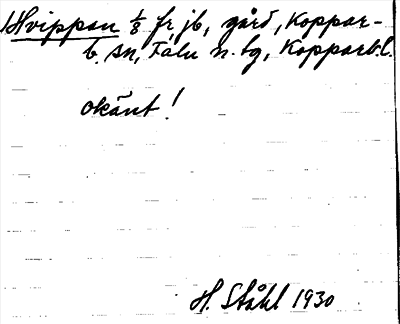 Hvippan 1/8 fr, jb, gård, Koppar-
b. sn, Falu n. tg, Kopparb. l.
okänt!
H. Ståhl 1930